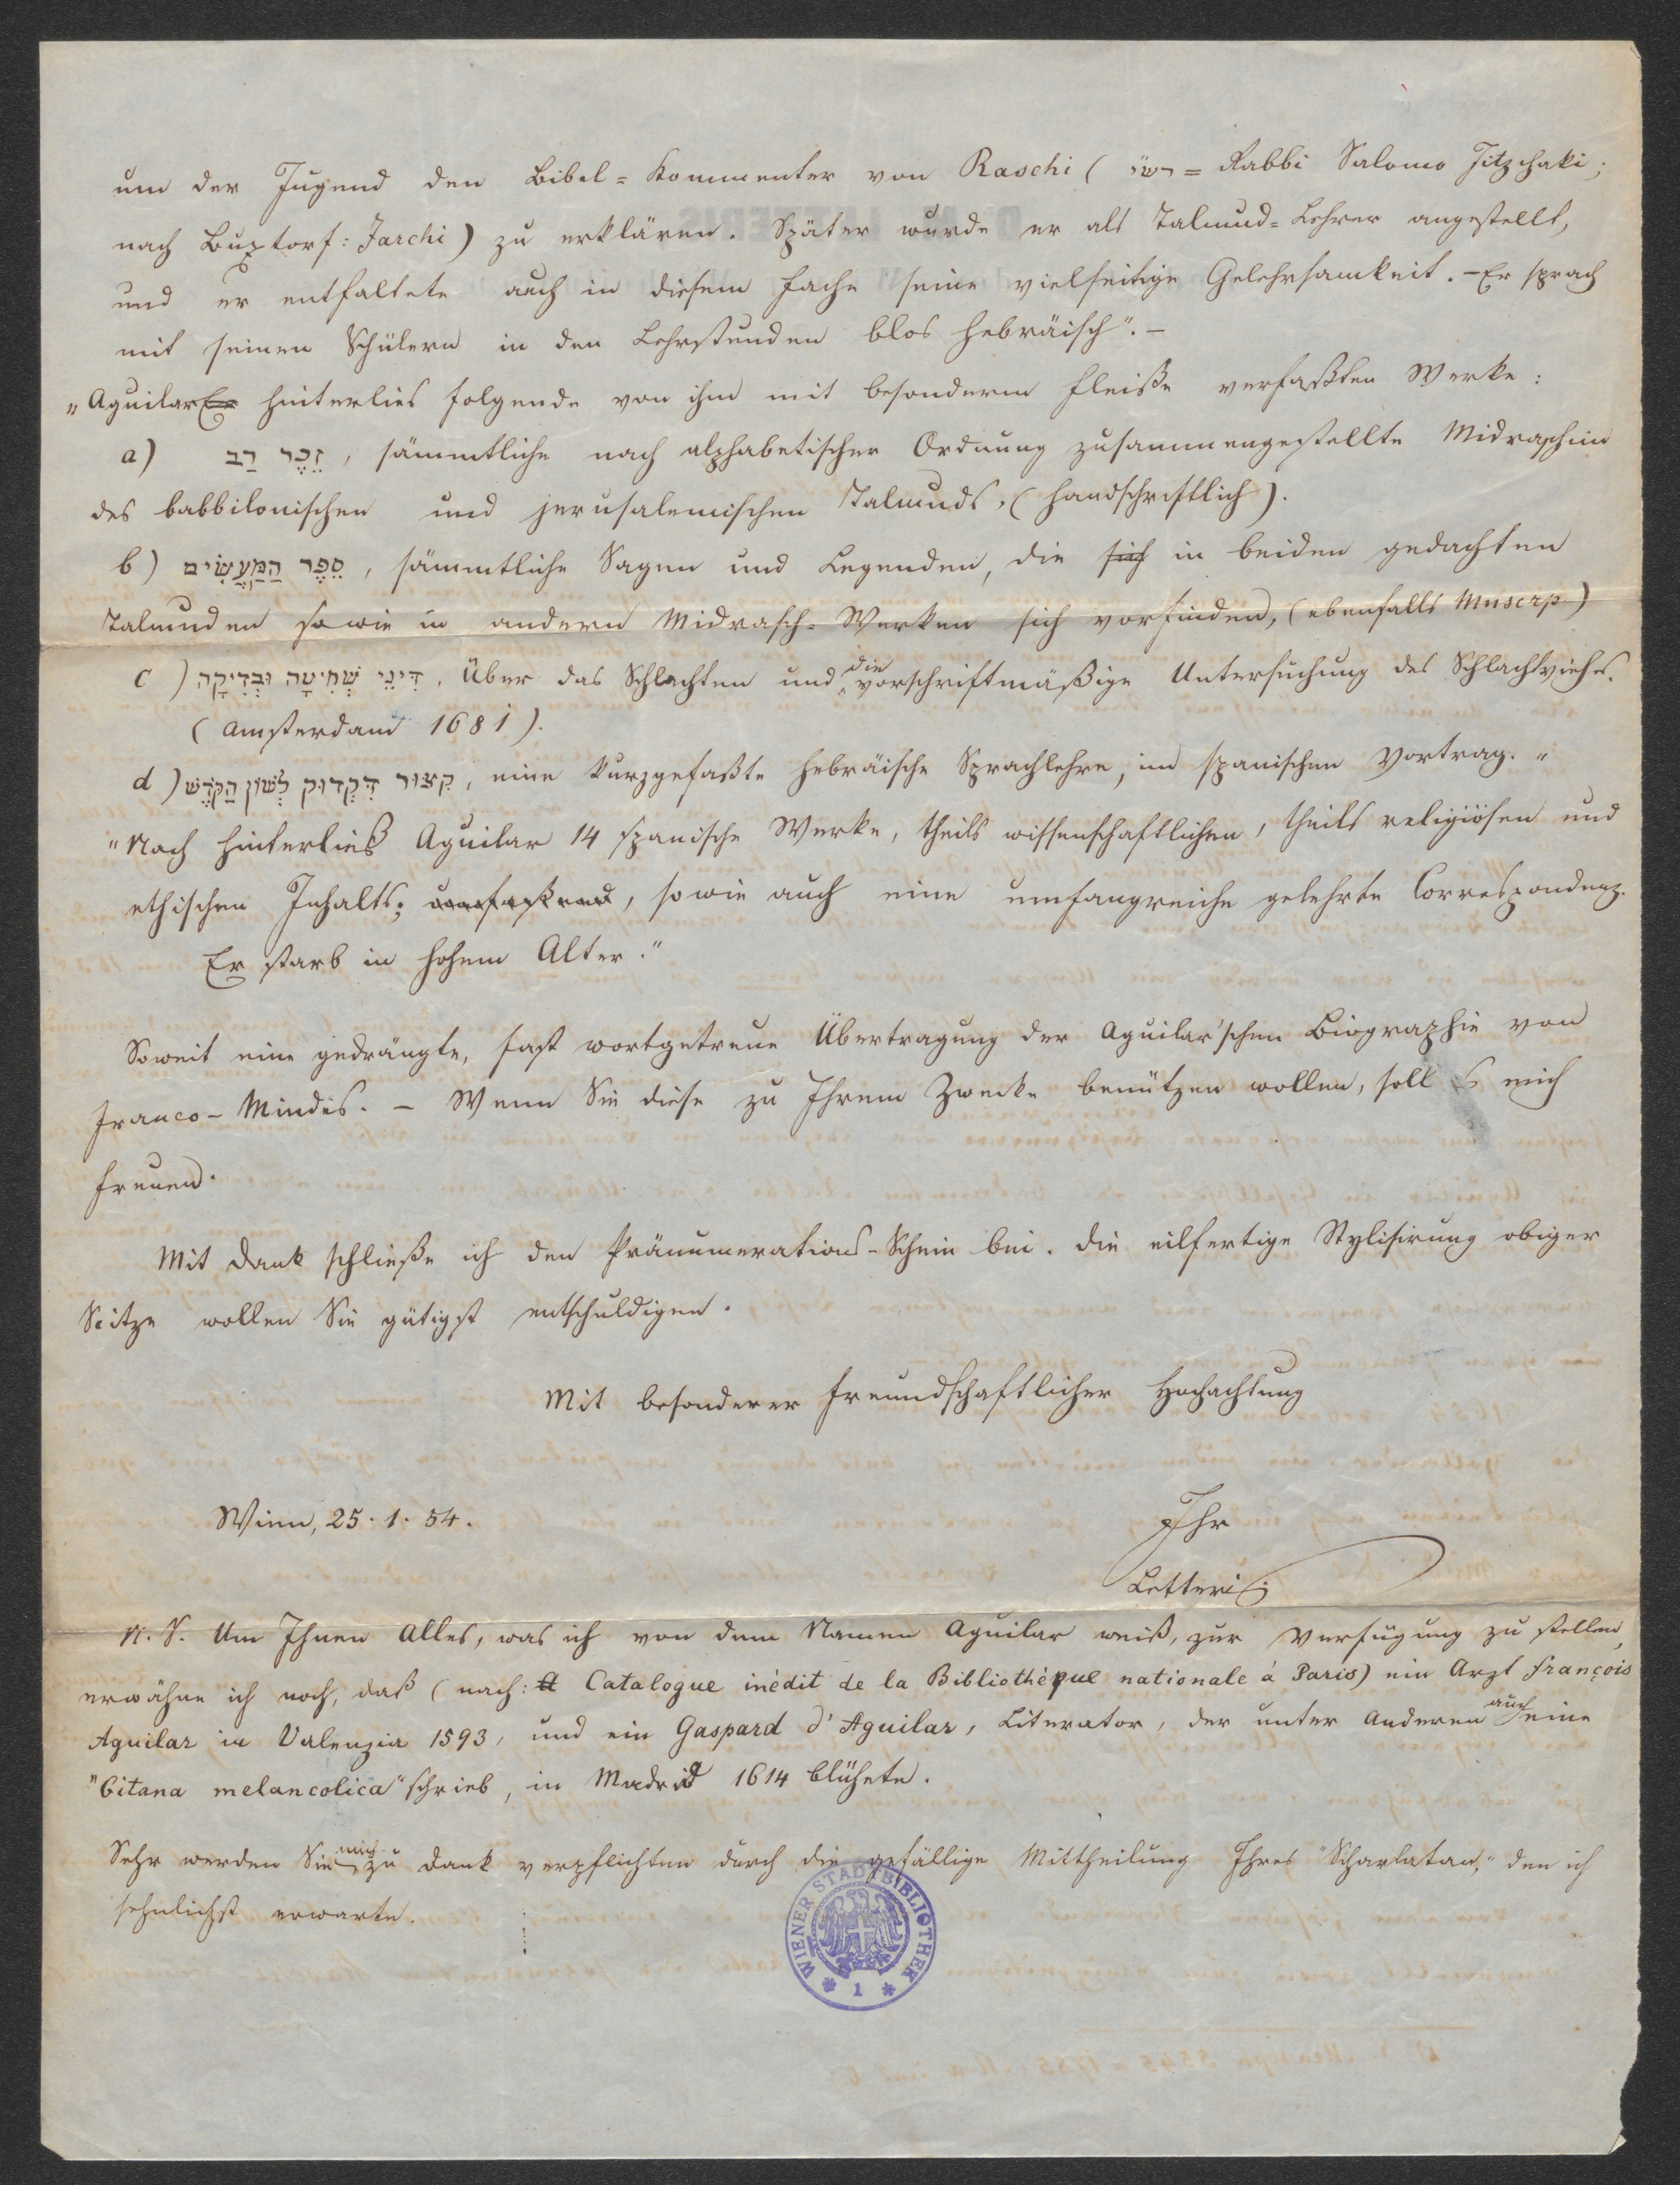 um der Jugend den Bibel=Kommenter von Raschi ( רש״י = Rabbi Salomo Jitzchaki;
nach Buxtorf: Jarchi) zu erklären. Später wurde er als Talmud=Lehrer angestellt,
und er entfaltete auch in diesem Fache seine vielseitige Gelehrsamkeit. – Er sprach
mit seinen Schülern in den Lehrstunden blos hebräisch". –
"Aguilar Er hinterlies folgende von ihm mit besonderm Fleiße verfaßten Werke:
a) זֵכֶר רַב, sämmtliche nach alphabetischer Ordnung zusammengestellte Midraschim
des babbilonischen und jerusalemischen Talmuds, (handschriftlich).
b) סֵפֶר הַמַּעֲשִׂים, sämmtliche Sagen und Legenden, die sich in beiden gedachten
Talmuden sowie in andern Midrasch=Werken sich vorfinden, (ebenfalls Mnscrp.)
c) דִּינֵי שְׁחִיטָה וּבְדִיקָה, Über das Schlachten und die vorschriftmäßige Untersuchung des Schlachtviehes.
(Amsterdam 1681).
d) קִצּוּר דִּקְדּוּק לְשׁוֹן הַקֹּדֶשׁ, eine kurzgefaßte hebräische Sprachlehre, im spanischen Vortrag."
"Noch hinterließ Aguilar 14 spanische Werke, theils wissenschaftlichen, theils religiösen und
ethischen Inhalts; umfassend, sowie auch eine umfangreiche gelehrte Correspondenz.
Er starb in hohem Alter."
Soweit eine gedrängte, fast wortgetreue Übertragung der Aguilar'schen Biographie von
Franco-Mindes. – Wenn Sie diese zu Ihrem Zwecke benützen wollen, soll es mich
freuen.
Mit Dank schließe ich den Pränumerations-Schein bei. Die eilfertige Stylisirung obiger
Scitze wollen Sie gütigst entschuldigen.
Mit besonderer freundschaftlicher Hochachtung
Wien, 25. 1. 54.
Ihr
Letteris
N. S. Um Ihnen Alles, was ich von dem Namen Aguilar weiß, zur Verfügung zu stellen,
erwähne ich noch, daß (nach: Catalogue inédit de la Bibliothéque nationale á Paris) ein Arzt François
Aguilar in Valenzia 1593, und ein Gaspard d'Aguilar, Literator, der unter Anderen auch eine
"Gitana melancolica" schrieb, in Madrid 1614 blühete.
Sehr werden Sie mich zu Dank verpflichten durch die gefällige Mittheilung Ihres "Scharlatan," den ich
sehnlichst erwarte.
WIENER STADTBIBLIOTHEK
1